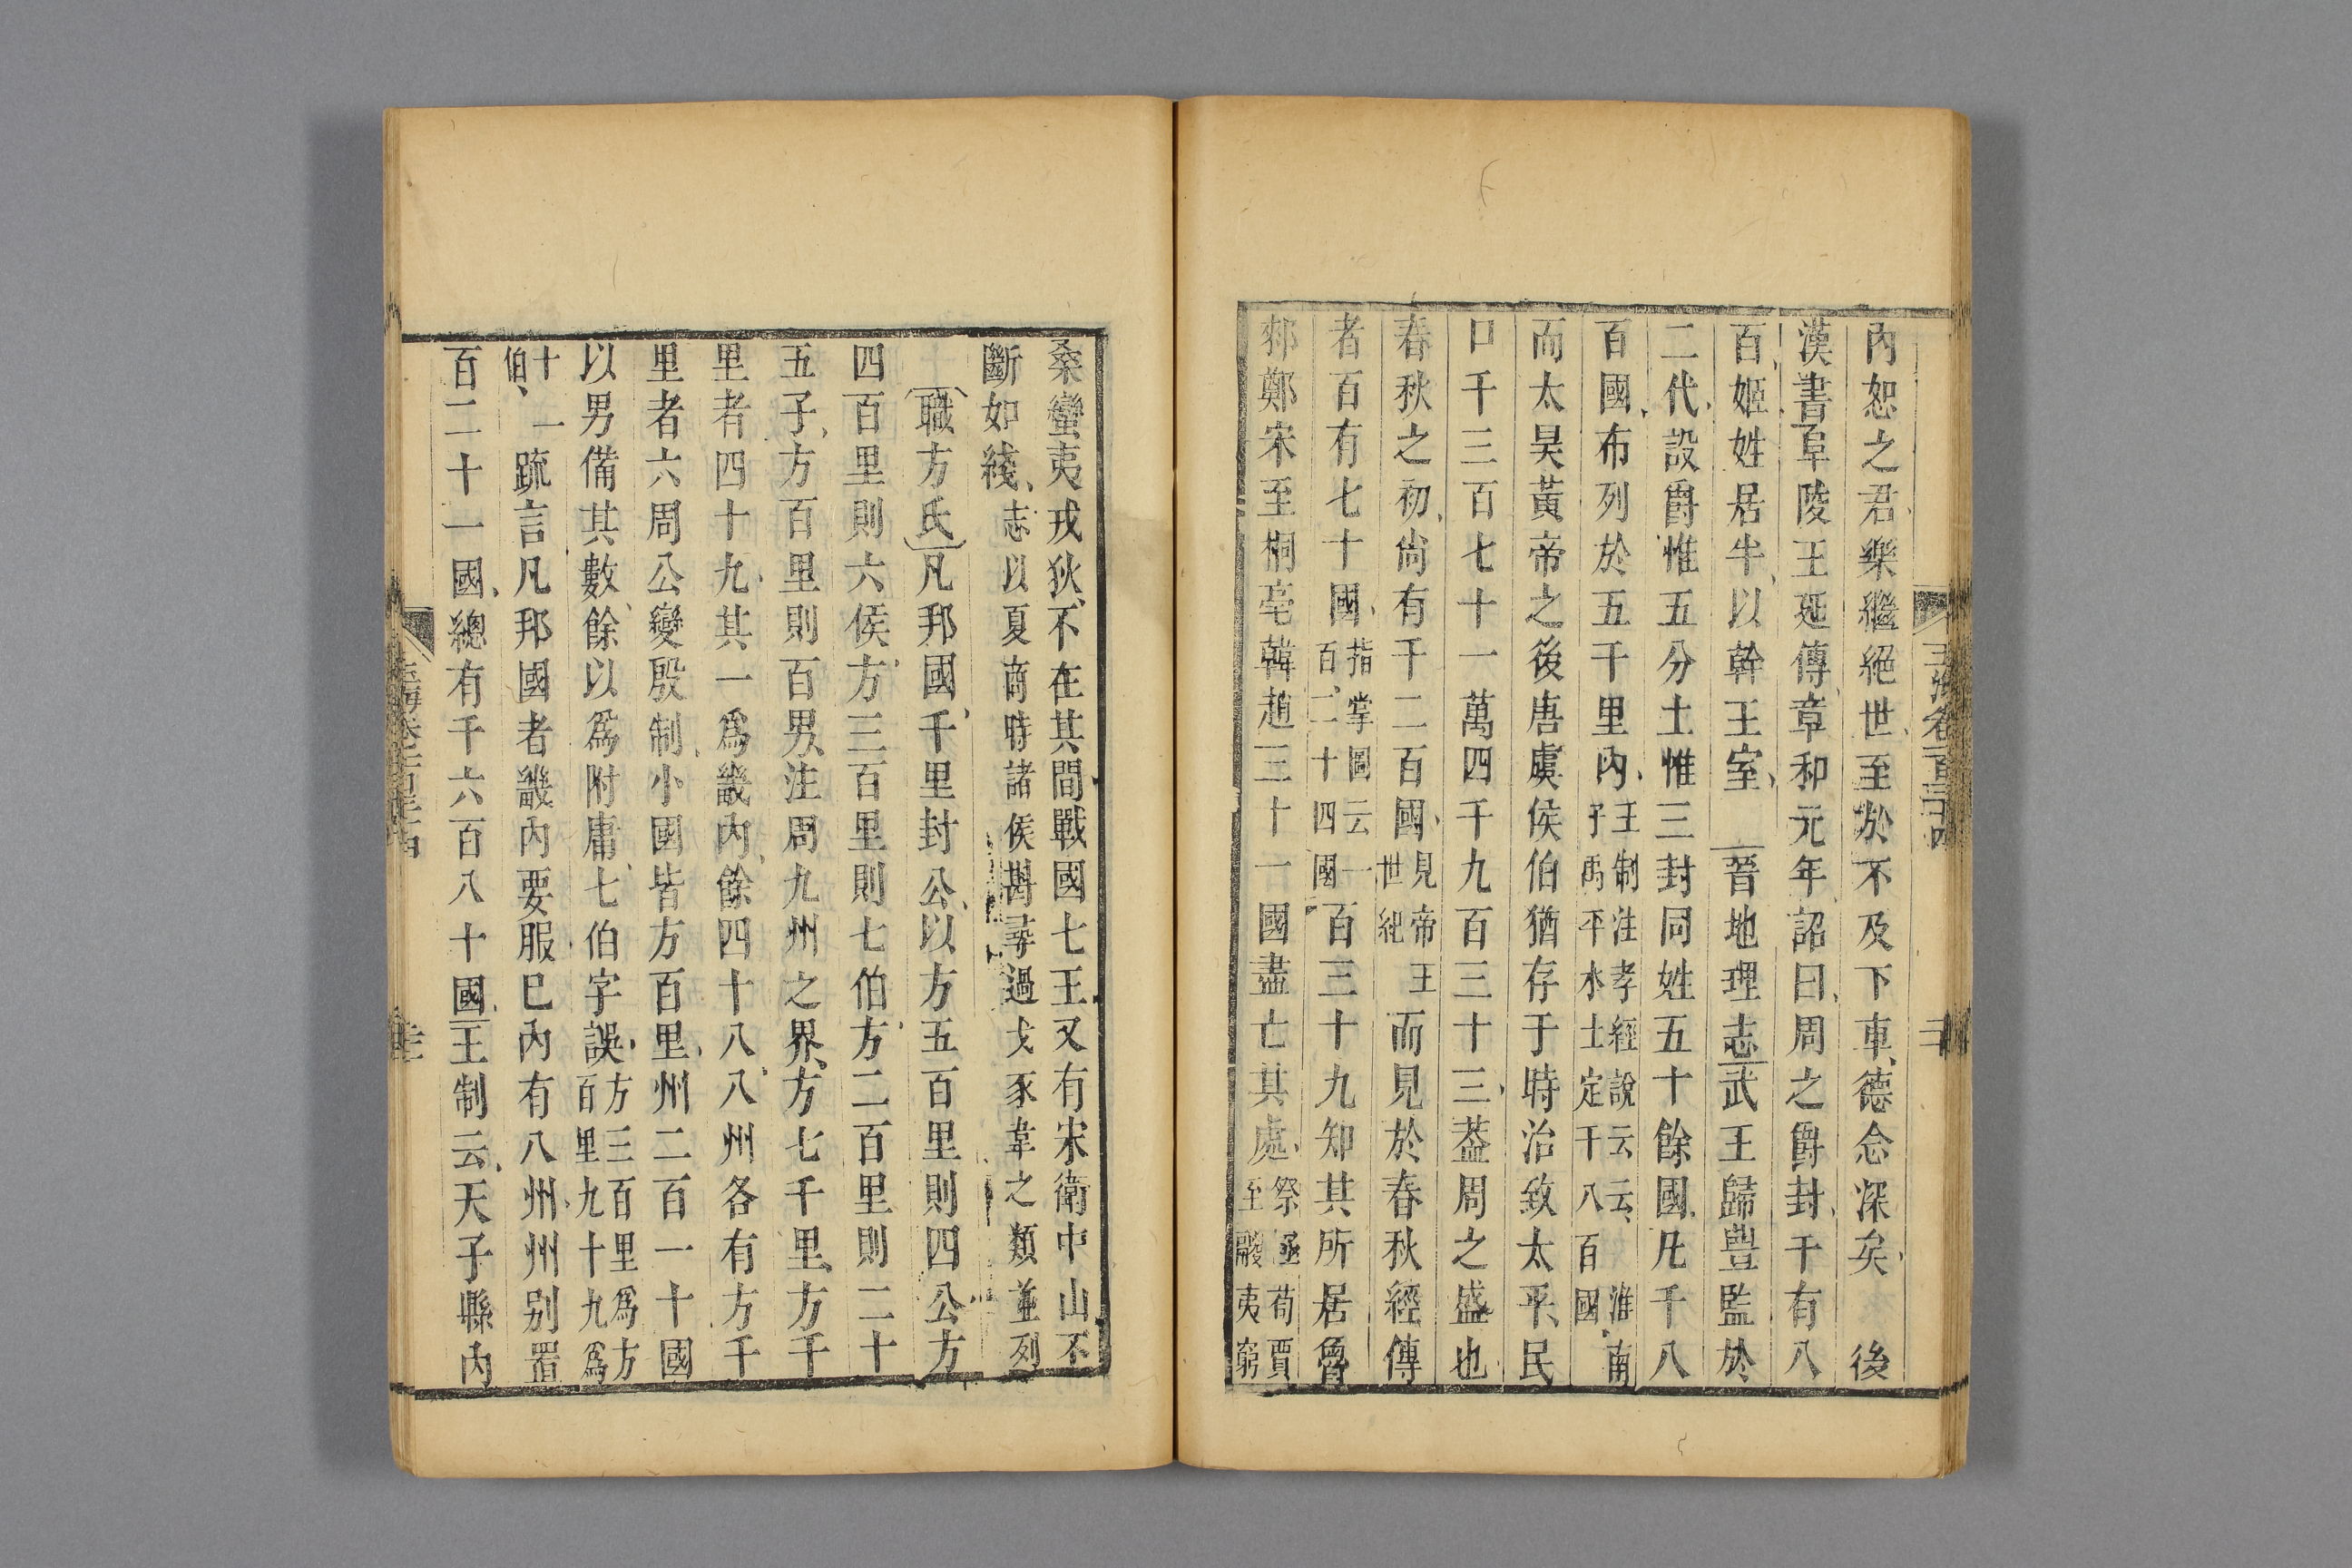 內恕之君樂繼絕世至於不及下車德念深矣 後
漢書阜陵王延傳章和元年詔曰周之爵封千有八
百姬姓居半以幹王室 晉地理志武王歸豐監於
二代設爵惟五分土惟三封同姓五十餘國凡千八
百國布列於五千里內王制注孝經說云云淮南子禹平水土定千八百國
而太昊黃帝之後唐虞侯伯猶存于時治致太平民
口千三百七十一萬四千九百三十三葢周之盛也
春秋之初尚有千二百國見帝王世紀而見於春秋經傳
者百有七十國指掌圖云一百二十四國百三十九知其所居魯
邾鄭宋至桐亳韓趙三十一國盡亡其處祭極荀賈至殽夷窮
桑蠻夷戎狄不在其間戰國七王又有宋衛中山不
斷如綫志以夏商時諸侯斟尋過戈豕韋之類並列
職方氏凡邦國千里封公以方五百里則四公方
四百里則六侯方三百里則七伯方二百里則二十
五子方百里則百男注周九州之界方七千里方千
里者四十九其一爲畿內餘四十八八州各有方千
里者六周公變殷制小國皆方百里州二百一十國
以男備其數餘以爲附庸七伯字誤方三百里爲方百里九十九爲
十一伯疏言凡邦國者畿內要服巳內有八州州别置
百二十一國總有千六百八十國王制云天子縣內